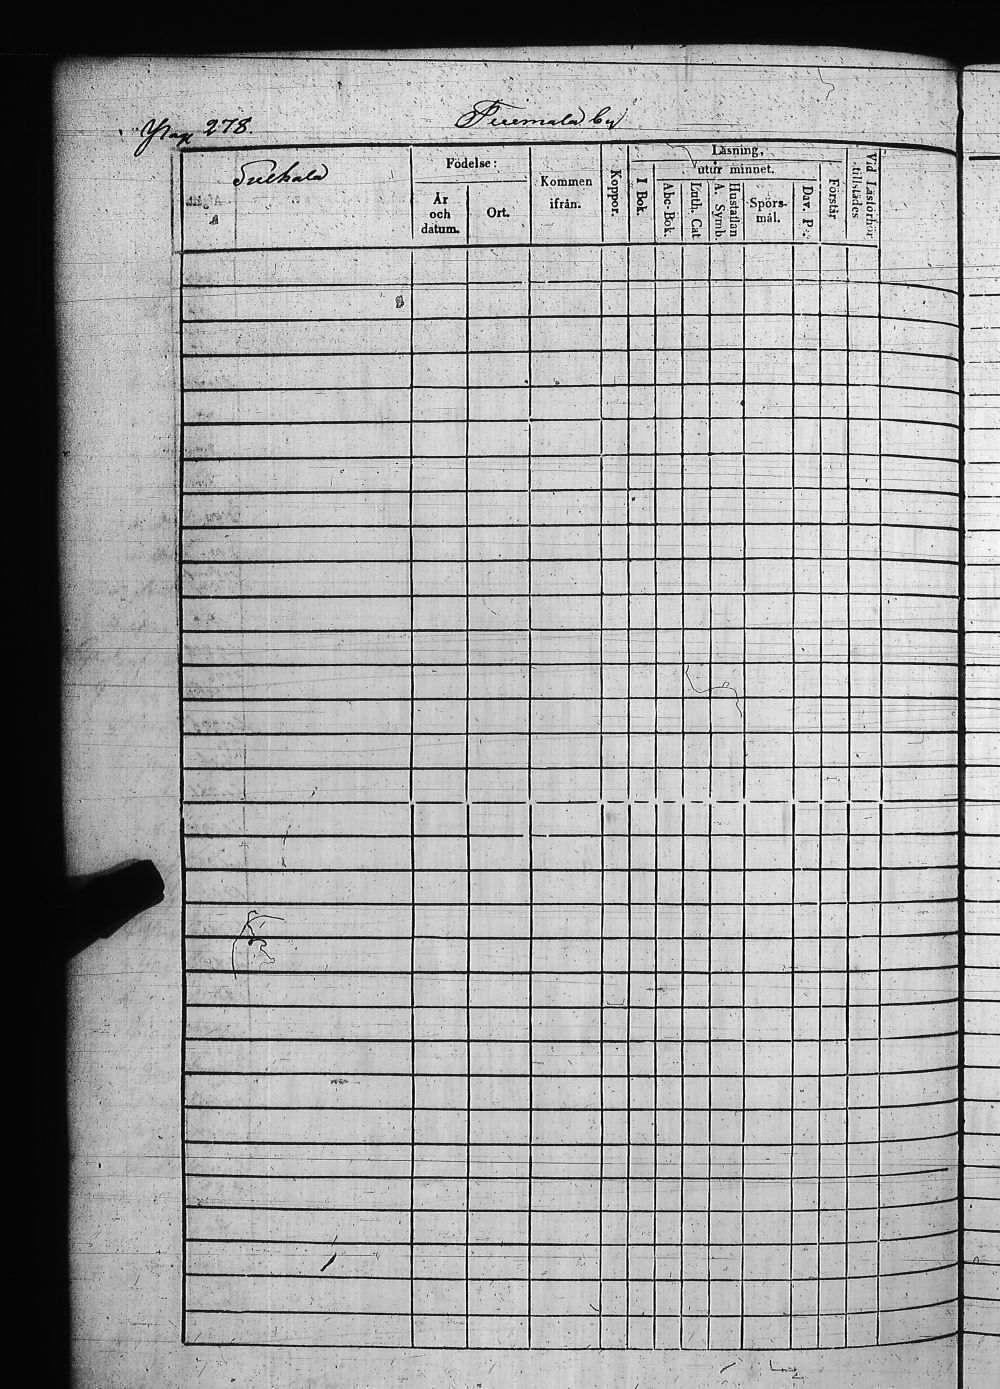 Pag 278.
by
Födelse:
År och datum.
Ort.
Kommen ifrån.
Koppor.
Läsning,
I Bok.
utur minnet.
Abc-Bok.
Luth. Cat
Hustaflan
A. Symb.
Spörs-
mål.
Dav. P.
Förstår
Vid Läsförhör
tillstädes